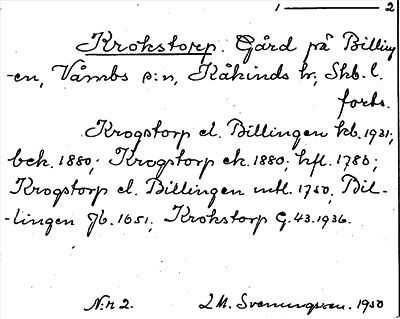 1 ——— 2
Krokstorp. Gård på Billing
-en, Våmbs s:n, Kåkinds hr, Skb. l.
forts.
Krogstorp el. Billingen kb. 1921;
bek. 1880; Krogstorp ek. 1880; hfl. 1783;
Krogstorp el. Billingen mtl. 1750; Bil-
-lingen Jb. 1651; Krokstorp G. 43. 1936.
N:r 2. L M. Svenungsson. 1950